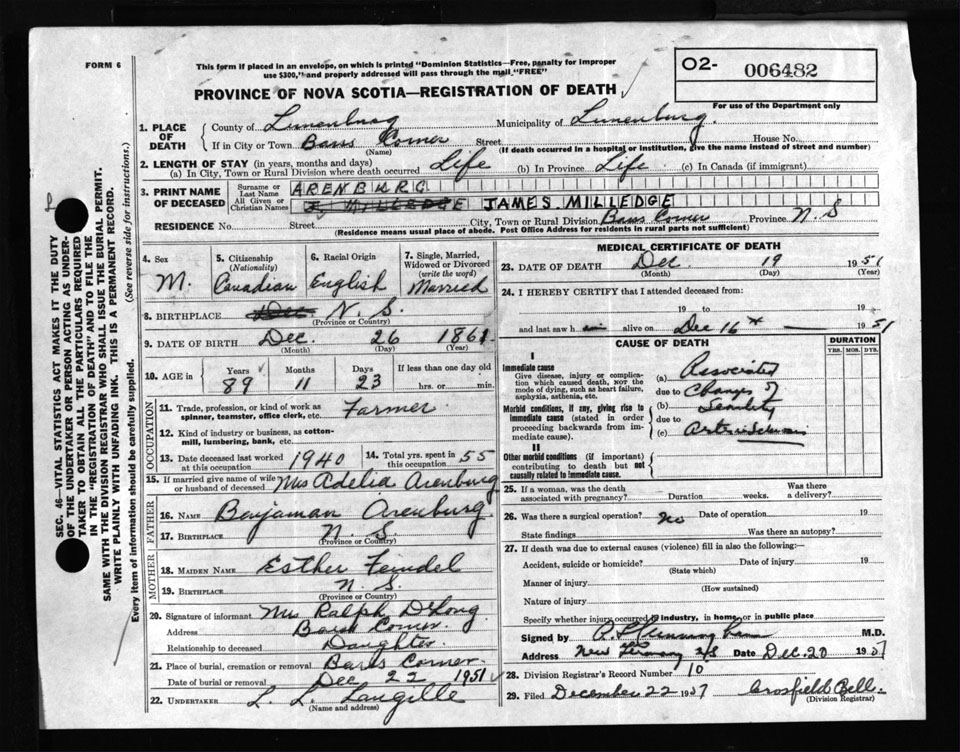 FORM 6
This form if placed in an envelope, on which is printed "Dominion Statistics—Free, penalty for improper
use $300," and properly addressed will pass through the mail "FREE"
O2- 006482
For use of the Department only
PROVINCE OF NOVA SCOTIA—REGISTRATION OF DEATH
1. PLACE OF DEATH
County of Lunenburg Municipality of Lunenburg.
If in City or Town Barss Corner Street House No.
(Name) (If death occurred in a hospital or institution, give the name instead of street and number)
2. LENGTH OF STAY (in years, months and days)
(a) In City, Town or Rural Division where death occurred Life (b) In Province Life (c) In Canada (if immigrant)
3. PRINT NAME OF DECEASED
Surname or Last Name ARENBURG
All Given or Christian Names MILLEDGE JAMES MILLEDGE
RESIDENCE No. Street City, Town or Rural Division Barss Corner Province N.S
(Residence means usual place of abode. Post Office Address for residents in rural parts not sufficient)
SEC. 46—VITAL STATISTICS ACT MAKES IT THE DUTY
OF THE UNDERTAKER OR PERSON ACTING AS UNDER-
TAKER TO OBTAIN ALL THE PARTICULARS REQUIRED
IN THE "REGISTRATION OF DEATH" AND TO FILE THE
SAME WITH THE DIVISION REGISTRAR WHO SHALL ISSUE THE BURIAL PERMIT.
WRITE PLAINLY WITH UNFADING INK. THIS IS A PERMANENT RECORD.
Every item of information should be carefully supplied. (See reverse side for instructions.)
4. Sex M.
5. Citizenship (Nationality) Canadian
6. Racial Origin English
7. Single, Married, Widowed or Divorced (write the word) Married
8. BIRTHPLACE Dec. N. S.
(Province or Country)
9. DATE OF BIRTH Dec. 26 1861
(Month) (Day) (Year)
10. AGE in Years 89 Months 11 Days 23 If less than one day old
hrs. or min.
OCCUPATION
11. Trade, profession, or kind of work as
spinner, teamster, office clerk, etc. Farmer
12. Kind of industry or business, as cotton-
mill, lumbering, bank, etc.
13. Date deceased last worked at this occupation 1940 14. Total yrs. spent in this occupation 55
15. If married give name of wife or husband of deceased Mrs Adelia Arenburg
FATHER
16. NAME Benjaman Arenburg.
17. BIRTHPLACE N. S.
(Province or Country)
MOTHER
18. MAIDEN NAME Esther Feindel
19. BIRTHPLACE N. S.
(Province or Country)
20. Signature of informant Mrs Ralph DeLong
Address Barss Corner.
Relationship to deceased Daughter
21. Place of burial, cremation or removal Barss Corner.
Date of burial or removal Dec 22 1951
22. UNDERTAKER L. L. Langille
(Name and address)
MEDICAL CERTIFICATE OF DEATH
23. DATE OF DEATH Dec. 19 1951
(Month) (Day) (Year)
24. I HEREBY CERTIFY that I attended deceased from:
19 to 19
and last saw h im alive on Dec 16th 1951
CAUSE OF DEATH
DURATION
YRS. MOS. DYS.
I
Immediate cause
Give disease, injury or complica-
tion which caused death, NOT the
mode of dying, such as heart failure,
asphyxia, asthenia, etc.
(a) Associated
due to Changes of
Morbid conditions, if any, giving rise to
immediate cause (stated in order
proceeding backwards from im-
mediate cause).
(b) Senility
due to
(c)
II
Other morbid conditions (if important)
contributing to death but not
causally related to immediate cause.
25. If a woman, was the death associated with pregnancy? Duration weeks. Was there a delivery?
26. Was there a surgical operation? no Date of operation 19
State findings Was there an autopsy?
27. If death was due to external causes (violence) fill in also the following:—
Accident, suicide or homicide? Date of injury 19
(State which)
Manner of injury
(How sustained)
Nature of injury
Specify whether injury occurred in industry, in home, or in public place
Signed by M.D.
Address New Germany N/S Date Dec. 20 1951
28. Division Registrar's Record Number 10
29. Filed December 22 1951 Crosfield Bell.
(Division Registrar)